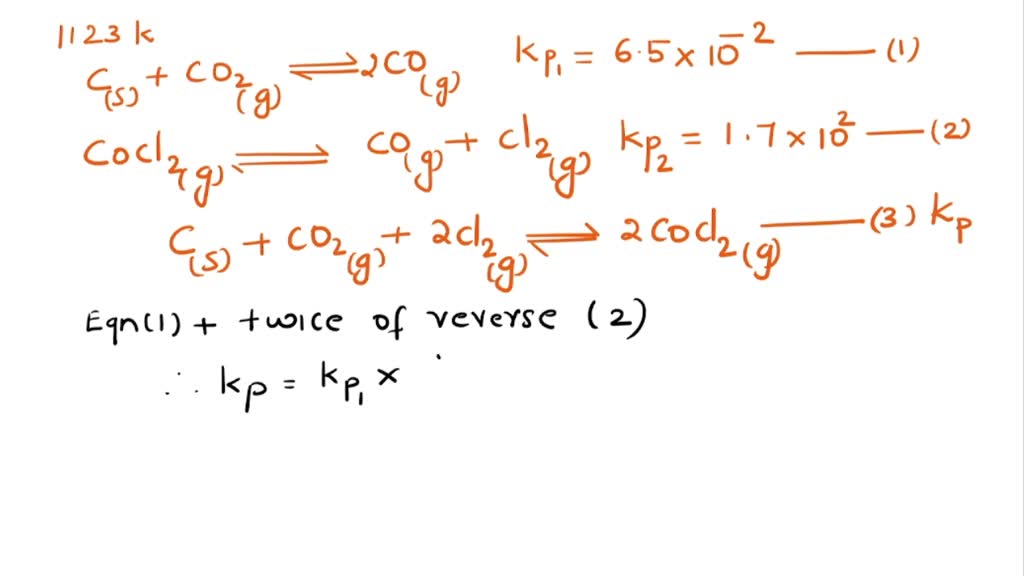 1123 k
C(s) + CO2(g) ⇌ 2CO(g) kp1 = 6.5 × 10^-2 —— (1)
COCl2(g) ⇌ CO(g) + Cl2(g) kp2 = 1.7 × 10^2 —— (2)
C(s) + CO2(g) + 2Cl2(g) ⇌ 2COCl2(g) —— (3) kp
Eqn(1) + twice of reverse (2)
∴ kp = kp1 ×